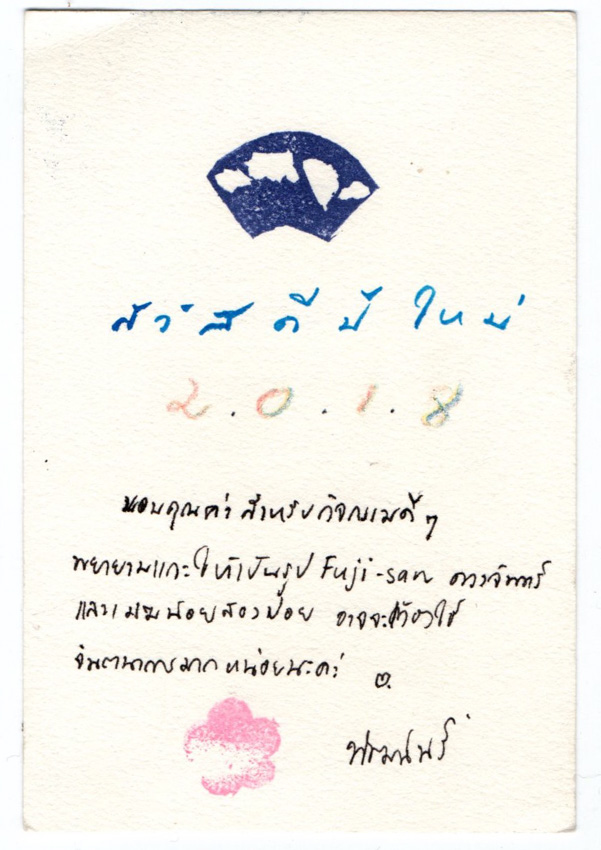 สวัสดีปีใหม่
2.0.1.8
ขอบคุณค่า สำหรับ
พยายามแกะให้เป็นรูป Fuji-san ดวงจันทร์
และเมฆน้อยสองป้อย อาจจะต้องใช้
จินตนาการมากหน่อยนะคะ